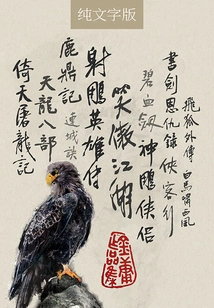 纯文字版
飛狐外傳 白馬嘯西風
書劍恩仇錄 俠客行
碧血劍 神雕俠侶
笑傲江湖
射雕英雄傳
鹿鼎記 連城訣
天龍八部
倚天屠龍記
金庸作品集